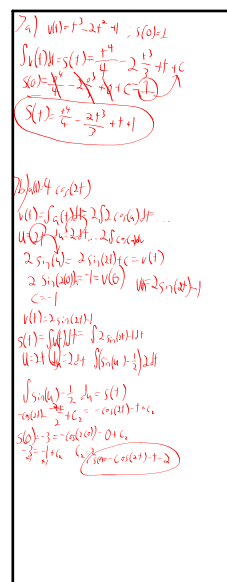 7a) v(t)=t³-2t²+1 ; s(0)=1
∫v(t)dt=s(t)=t⁴/4-2t³/3+t+c
s(0)=0⁴/4-2·0³/3+0+c=1
s(t)=t⁴/4-2t³/3+t+1
7b) a(t)=4cos(2t)
v(t)=∫a(t)dt=2∫2cos(u)dt=...
u=2t du=2dt ...2∫cos(u)du
2sin(u)=2sin(2t)+c=v(t)
2sin(2(0))=-1=v(0) v(t)=2sin(2t)-1
c=-1
v(t)=2sin(2t)-1
s(t)=∫v(t)dt=∫2sin(2t)-1dt
u=2t du=2dt ∫(sin(u)-1/2)2dt
∫sin(u)-1/2 du=s(t)
-cos(2t)-2t/2+c₂=-cos(2t)-t+c₂
s(0)=-3=-cos(2(0))-0+c₂
-3=-1+c₂ c₂=-2 s(t)=-cos(2t)-t-2